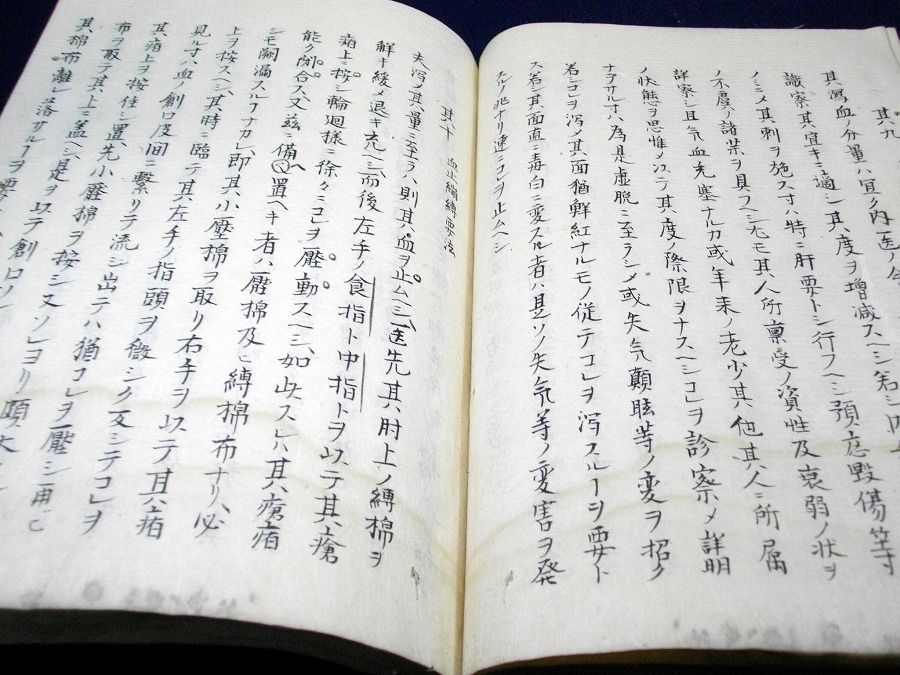 其九
其瀉血ノ分量ハ宜ク内医ノ
識察其宜キニ適シ其度ヲ増減スヘシ若シ内
ノミメ其刺ヲ施スヿハ特ニ肝要トシ行フヘシ預メ毀傷
ノ不慮ノ諸業ヲ具フヘシ尤モ其人所禀受ノ資性及衰弱ノ状ヲ
詳察シ且气血充塞ナルカ或年来ノ老少其他其人ニ所属
ノ状態ヲ思惟メ以テ其度ノ際限ヲナスヘシコレヲ診察メ詳明
ナラサルハ為是虚脱ニ至ラシメ或失気顛眩等ノ変ヲ招ク
若シコレヲ瀉メ其面猶鮮紅ナルモノ従テコレヲ瀉スルヿヲ要ト
ス若シ其面直ニ青白ニ変スル者ハ是ソノ失気等ノ変害ヲ発
スルノ兆ナリ速ニコレヲ止ムヘシ
其十 血止縛要法
夫瀉メ其量ニ至ラハ則其血ヲ止ムヘシ医先其肘上ノ縛棉ヲ
解キ緩メ退キ充ヘシ而後左手ノ食指ト中指トヲ以テ其瘡
痏上ニ按シ輪廻様ニ徐々ニコレヲ壓動スヘシ如此スレハ其瘡痏
能ク閉合ス又茲ニ備ヘ置ヘキ者ハ壓棉及ヒ縛棉布ナリ必
シモ闕漏スルヿナカレ即其小壓棉ヲ取リ右手ヲ以テ其痏
上ヲ按スヘシ其時ニ臨テ其左手ノ指頭ヲ微シク反シテコレヲ
見ルヿハ血ノ創口皮間ニ繋リテ流シ出テハ猶コレヲ壓シ用ヒ
其痏上ヲ按住シ置先小壓棉ヲ按シ又ソレヨリ頭大
布ヲ取テ其上ニ蓋ヘシ是ヲ以テ創口
其棉布離レ落サルヿヲ要